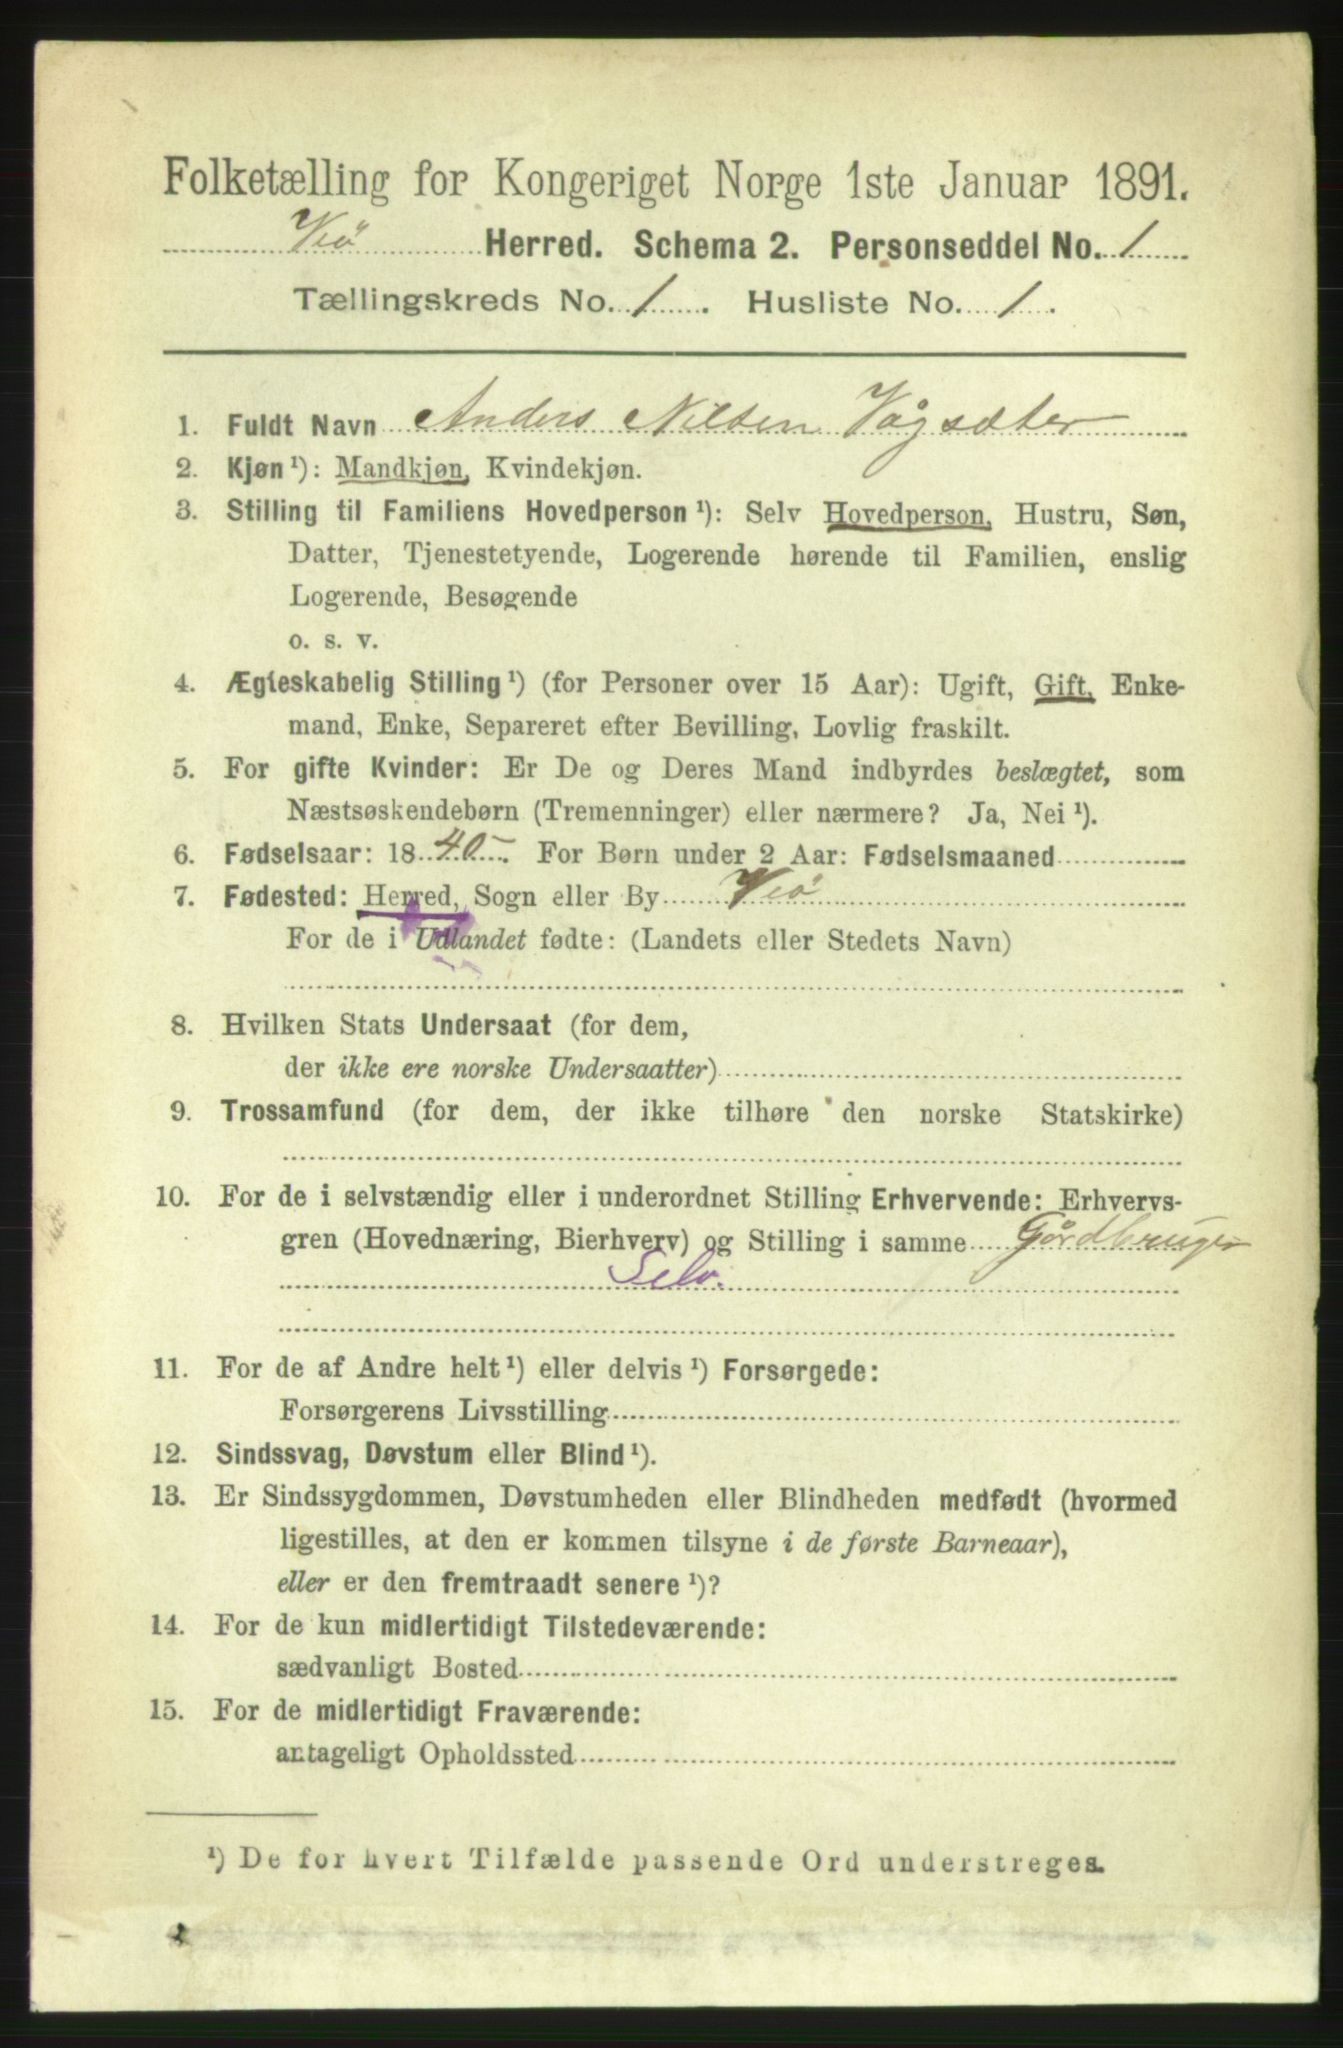 Folketælling for Kongeriget Norge 1ste Januar 1891.
Veø Herred. Schema 2. Personseddel No. 1
Tællingskreds No. 1. Husliste No. 1.
1. Fuldt Navn Anders Nilsen Vågsæter
2. Kjøn ¹): Mandkjøn, Kvindekjøn.
3. Stilling til Familiens Hovedperson ¹): Selv Hovedperson, Hustru, Søn,
Datter, Tjenestetyende, Logerende hørende til Familien, enslig
Logerende, Besøgende
o. s. v.
4. Ægteskabelig Stilling ¹) (for Personer over 15 Aar): Ugift, Gift, Enke-
mand, Enke, Separeret efter Bevilling, Lovlig fraskilt.
5. For gifte Kvinder: Er De og Deres Mand indbyrdes beslægtet, som
Næstsøskendebørn (Tremenninger) eller nærmere? Ja, Nei ¹).
6. Fødselsaar: 1840. For Børn under 2 Aar: Fødselsmaaned
7. Fødested: Herred, Sogn eller By Veø
For de i Udlandet fødte: (Landets eller Stedets Navn)
8. Hvilken Stats Undersaat (for dem,
der ikke ere norske Undersaatter)
9. Trossamfund (for dem, der ikke tilhøre den norske Statskirke)
10. For de i selvstændig eller i underordnet Stilling Erhvervende: Erhvervs-
gren (Hovednæring, Bierhverv) og Stilling i samme Gårdbruger
Selv.
11. For de af Andre helt ¹) eller delvis ¹) Forsørgede:
Forsørgerens Livsstilling
12. Sindssvag, Døvstum eller Blind ¹).
13. Er Sindssygdommen, Døvstumheden eller Blindheden medfødt (hvormed
ligestilles, at den er kommen tilsyne i de første Barneaar),
eller er den fremtraadt senere ¹)?
14. For de kun midlertidigt Tilstedeværende:
sædvanligt Bosted
15. For de midlertidigt Fraværende:
antageligt Opholdssted
¹) De for hvert Tilfælde passende Ord understreges.